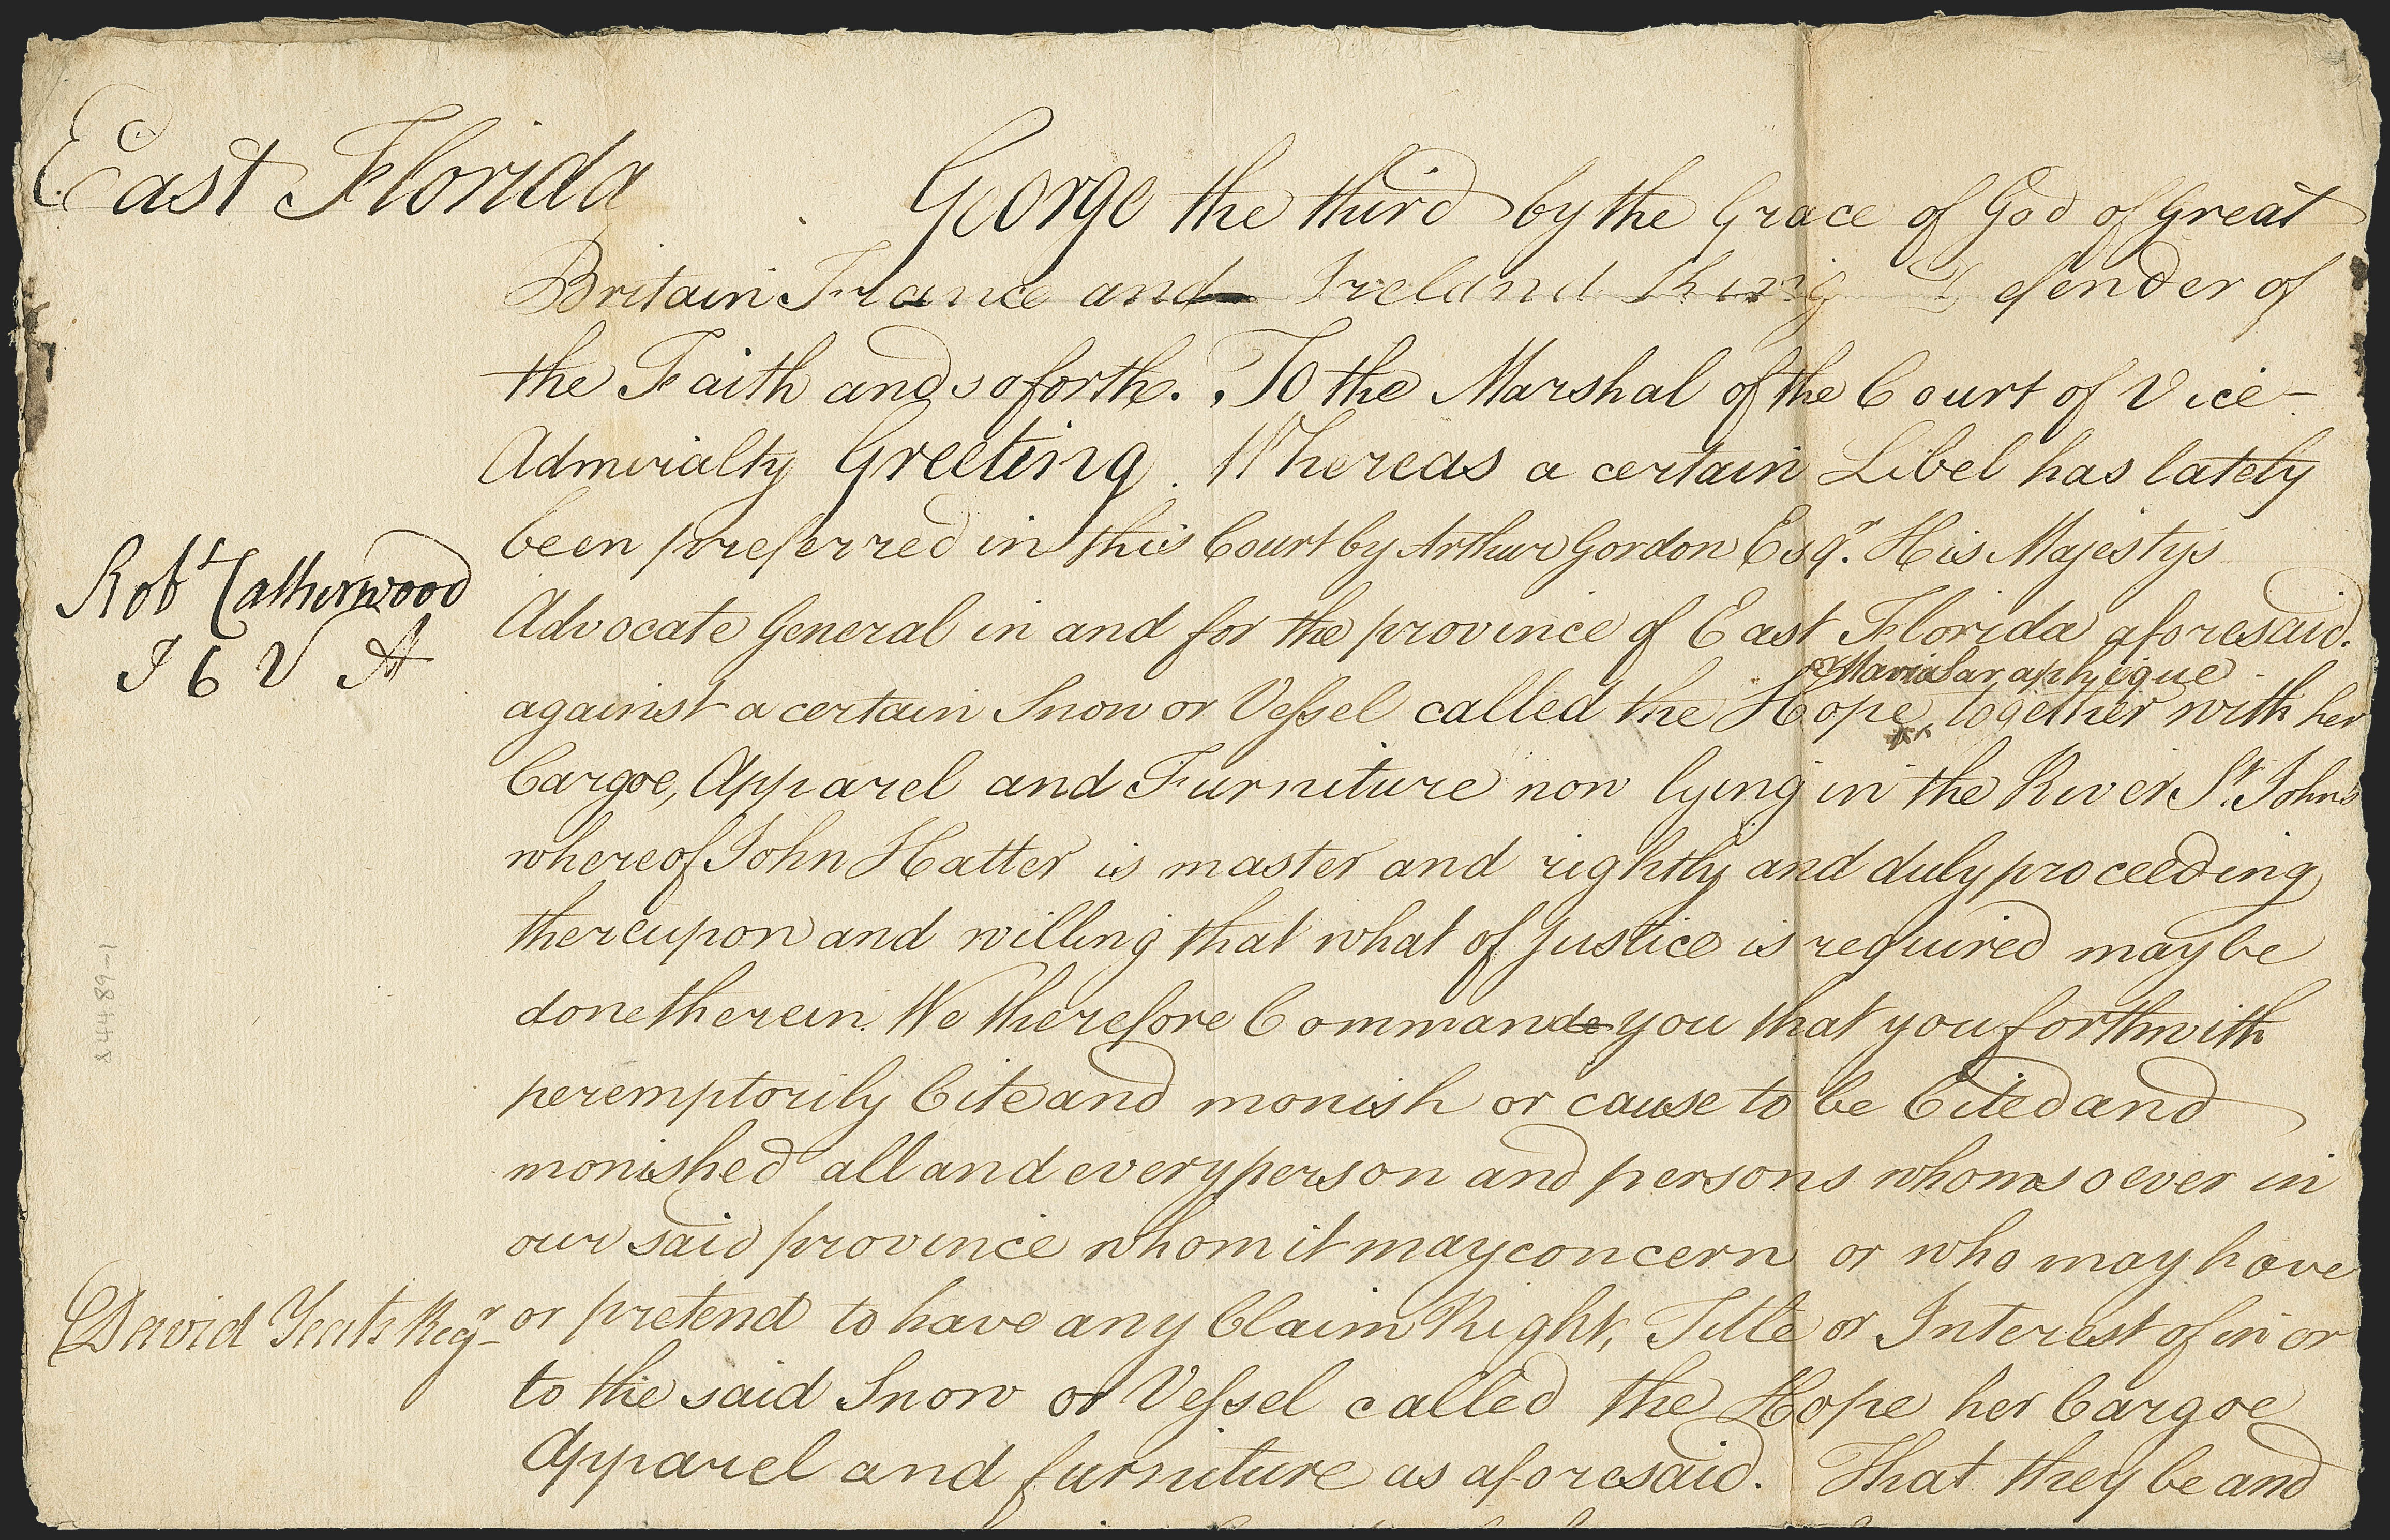 East Florida
George the third by the Grace of God of Great
Britain France and Ireland King Defender of
the Faith and so forth. To the Marshal of the Court of Vice-
Admiralty Greeting. Whereas a certain Libel has lately
been preferred in this Court by Arthur Gordon Esqr. His Majestys
Robt Catherwood
J C V A
Advocate General in and for the province of East Florida aforesaid.
or Maria Saraphique
against a certain Snow or Vessel called the Hope together with her
Cargoe, Apparel and Furniture now lying in the River St. Johns
whereof John Hatter is master and rightly and duly proceeding
thereupon and willing that what of Justice is required may be
done therein. We therefore Command you that you forthwith
peremptorily Cite and monish or cause to be Cited and
monished all and every person and persons whomsoever in
our said province whom it may concern or who may have
David Yeats Regr
or pretend to have any Claim Right, Title or Interest of in or
to the said Snow or Vessel called the Hope her Cargoe
Apparel and furniture as aforesaid. That they be and
84489-1